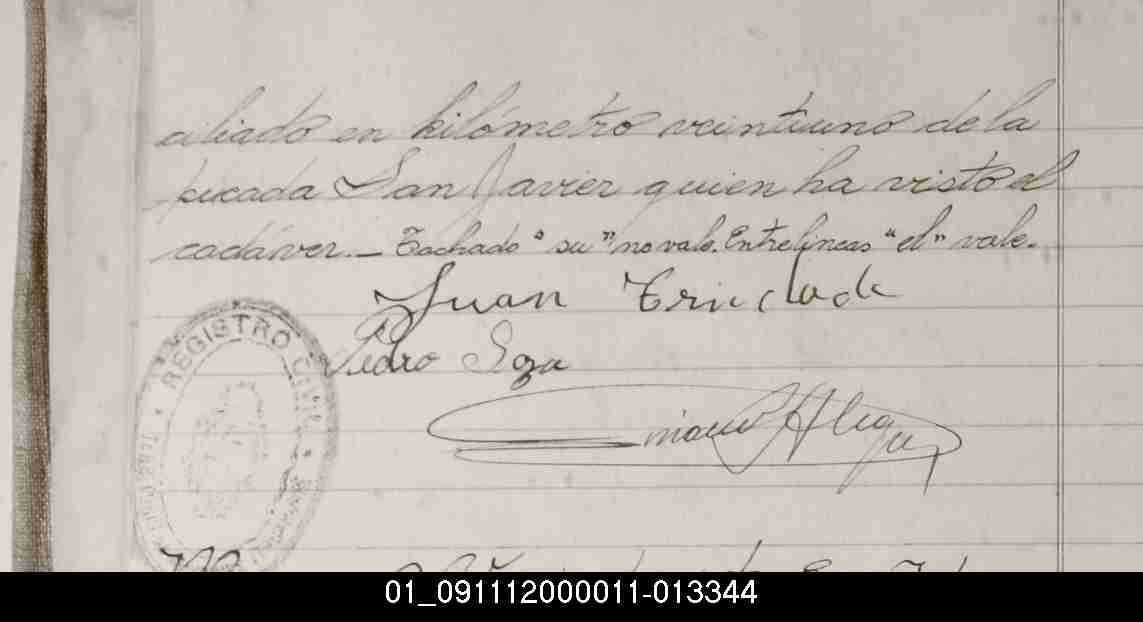 ciliado en kilómetro veintiuno de la
picada San Javier quien ha visto el
cadáver.— Tachado "su" no vale. Entrelíneas "el" vale.
Juan Trindade
Pedro
REGISTRO CIVIL
01_091112000011-013344